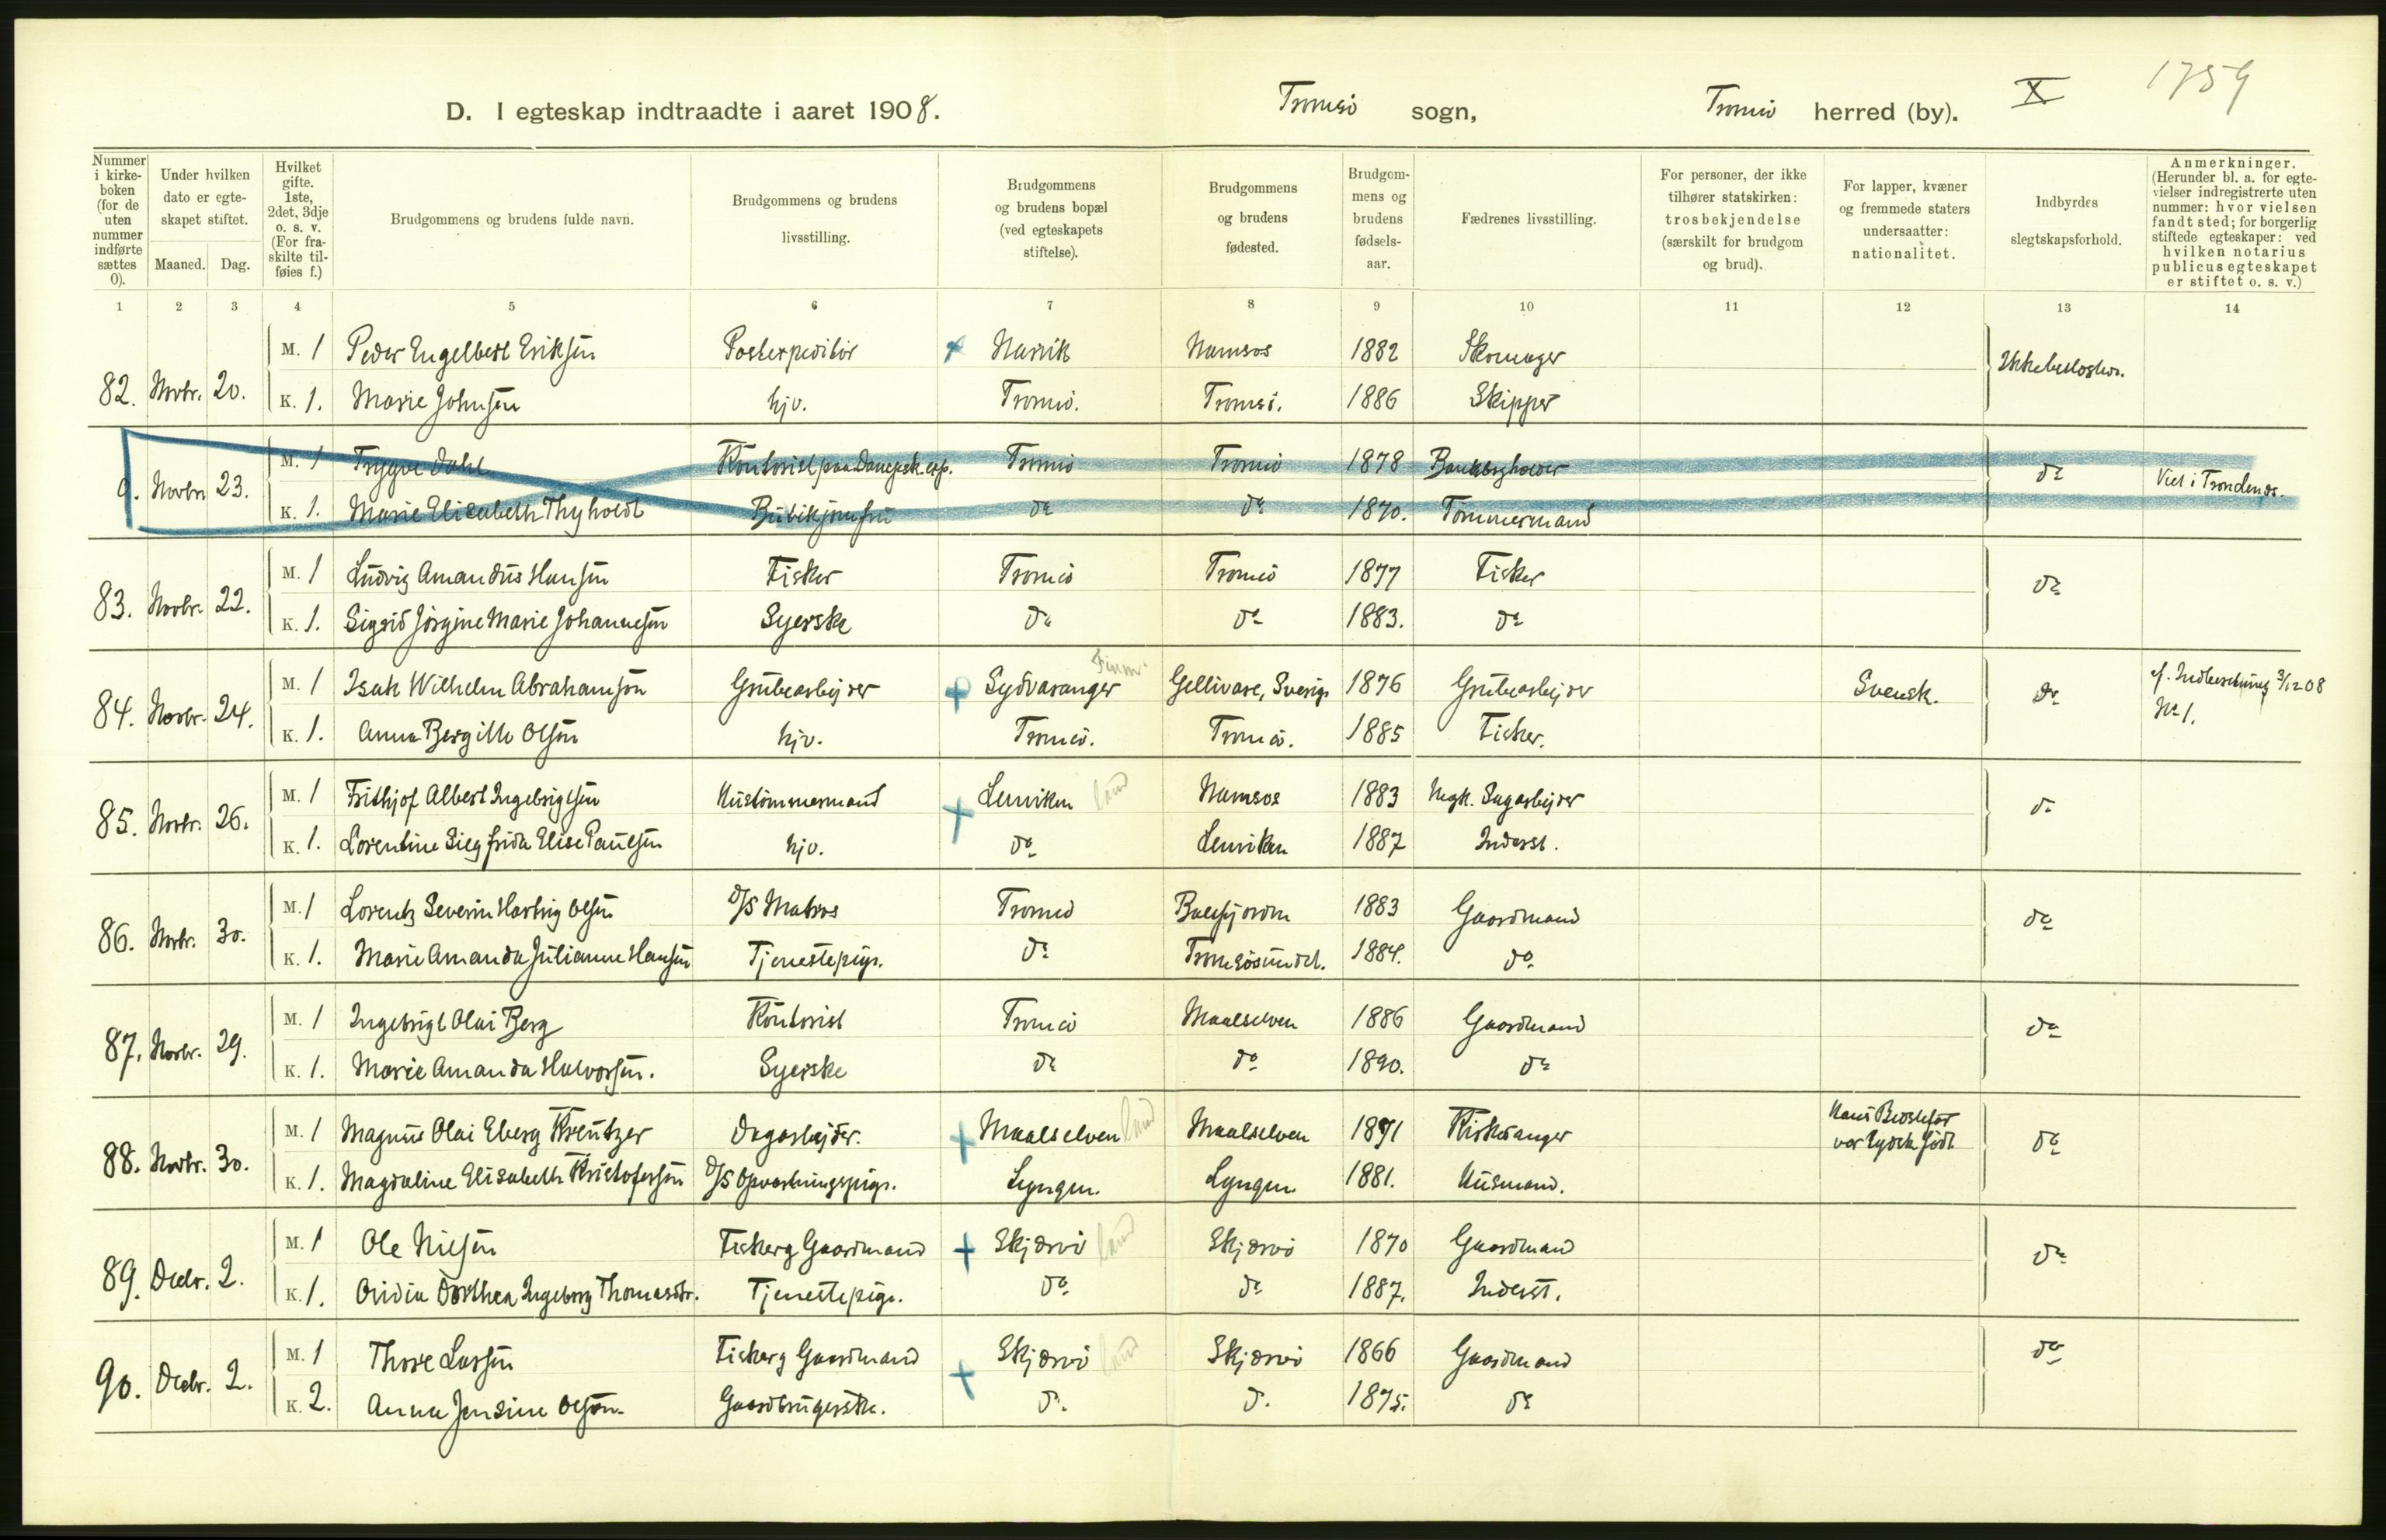 1759
D. I egteskap indtraadte i aaret 1908. Tromsö sogn, Tromsö herred (by). X
Nummer i kirkeboken (for de uten nummer indførte sættes 0).
Under hvilken dato er egteskapet stiftet.
Maaned. Dag.
Hvilket gifte. 1ste, 2det, 3dje o. s. v. (For fraskilte tilføies f.)
Brudgommens og brudens fulde navn.
Brudgommens og brudens livsstilling.
Brudgommens og brudens bopæl (ved egteskapets stiftelse).
Brudgommens og brudens fødested.
Brudgommens og brudens fødselsaar.
Fædrenes livsstilling.
For personer, der ikke tilhører statskirken: trosbekjendelse (særskilt for brudgom og brud).
For lapper, kvæner og fremmede staters undersaatter: nationalitet.
Indbyrdes slegtskapsforhold.
Anmerkninger. (Herunder bl. a. for egtevielser indregistrerte uten nummer: hvor vielsen fandt sted; for borgerlig stiftede egteskaper: ved hvilken notarius publicus egteskapet er stiftet o. s. v.)
1 2 3 4 5 6 7 8 9 10 11 12 13 14
82. Novbr. 20. M. 1 Peder Engelbert Eriksen Postexpeditör Narvik Namsos 1882 Skomager Ikke beslegtet.
K. 1. Marie Johnsen hjv. Tromsö. Tromsö. 1886 Skipper
0. Novbr. 23. M. 1 Trygve Dahl Kontorist paa Dampsk. exp. Tromsö Tromsö 1878 do Viet i Trondenes.
K. 1. Marie Elisabeth Thyholdt Butikjomfru do do 1870. Tömmermand
83. Novbr. 22. M. 1 Ludvig Amandus Hansen Fisker Tromsö Tromsö 1877 Fisker do
K. 1. Sigrid Jörgine Marie Johannesen Syerske do do 1883. do
84. Novbr. 24. M. 1 Isak Wilhelm Abrahamsen Grubearbejder Sydvaranger Finm. Gellivare, Sverige 1876 Grubearbejder Svensk. do cf. Indberetning 3/12 08
No 1.
K. 1. Anna Bergitte Olsen hjv. Tromsö. Tromsö. 1885 Fisker.
85. Novbr. 26. M. 1 Frithjof Albert Ingebrigtsen Hustömmermand Lenviken land Namsos 1883 Sagarbejder do
K. 1. Lorentine Siegfrida Elise Paulsen hjv. do Lenviken 1887 Inderst.
86. Novbr. 30. M. 1 Lorentz Severin Hartvig Olsen D/S Matros Tromsö Balsfjorden 1883 Gaardmand do
K. 1. Marie Amanda Julianne Hansen Tjenestepige. do Tromsösundet. 1884. do
87. Novbr. 29. M. 1 Ingebrigt Olai Berg Kontorist Tromsö Maalselven 1886 Gaardmand do
K. 1. Marie Amanda Halvorsen. Syerske do do 1890. do
88. Novbr. 30. M. 1 Magnus Olai Eberg Kreutzer Dagarbejder. Maalselven land Maalselven 1871 Kirkesanger Hans Bedstefar
var tydsk födt do
K. 1. Magdaline Elisabeth Kristofersen D/S Opvartningspige. Lyngen. Lyngen. 1881. Husmand.
89. Decbr. 2. M. 1 Ole Nilsen Fisker og Gaardmand Skjærvö land Skjærvö 1870 Gaardmand do
K. 1. Ovidia Dorthea Ingeborg Thomasdtr. Tjenestepige. do do 1887. Inderst.
90. Decbr. 2. M. 1 Thore Larsen Fisker og Gaardmand Skjærvö land Skjærvö 1866 Gaardmand do
K. 2. Anna Jensine Olsen. Gaardbrugerske. do do 1875. do